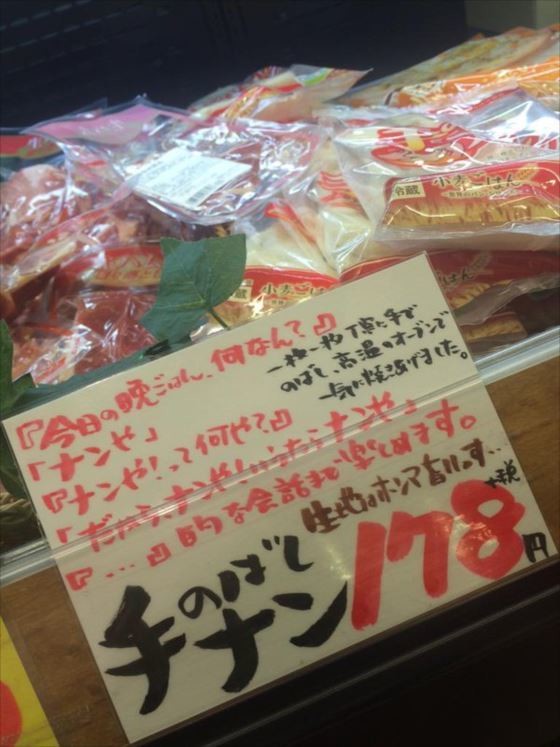 『今日の晩ごはん、何なんて?』
「ナンや」
『ナンや!って何やて?』
「だから、ナンやいうたらナンや」
『…』的な会話まで楽しめます。
一枚一枚丁寧に手で
のばし、高温のオーブンで
一気に焼きあげました。
生地はホンマ旨いっす、
手のばし
ナン
178
円
+税
冷蔵
小麦ごはん
冷蔵
小麦ごはん